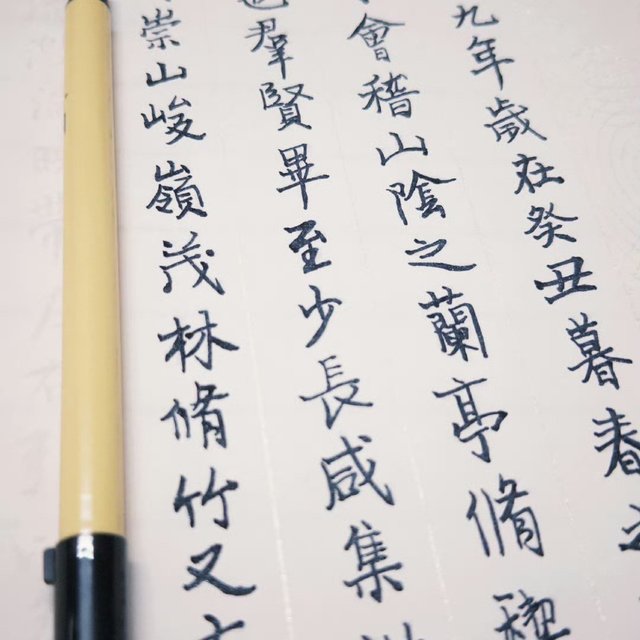 九年歲在癸丑暮春之
會稽山陰之蘭亭脩禊
羣賢畢至少長咸集
崇山峻嶺茂林脩竹又